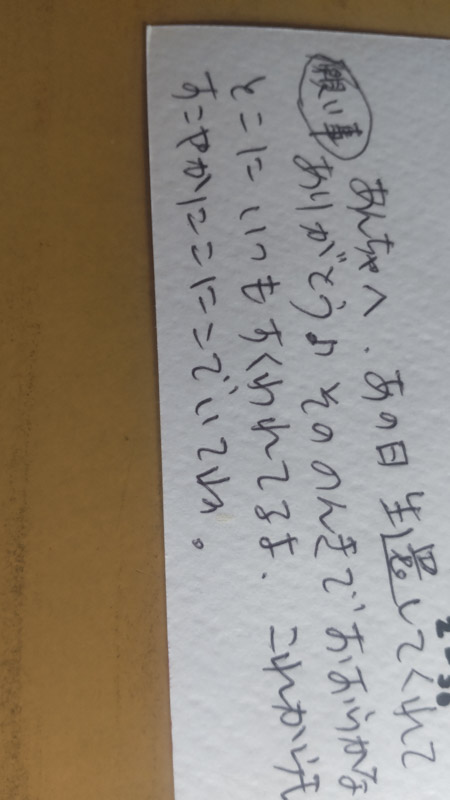 願い事
あんちゃへ.あの日 生還してくれて
ありがとうよ そののんきで おおらかな
とこに いつもすくわれてるよ. これからも
すこやかにこにこでいてね。